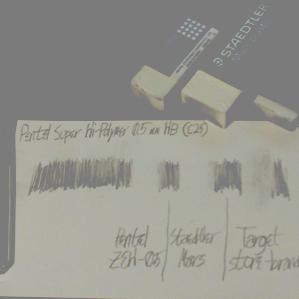 STAEDTLER
Pentel Super Hi-Polymer 0.5 mm HB (C25)
Pentel
ZEH-05
Staedtler
Mars
Target
store-brand